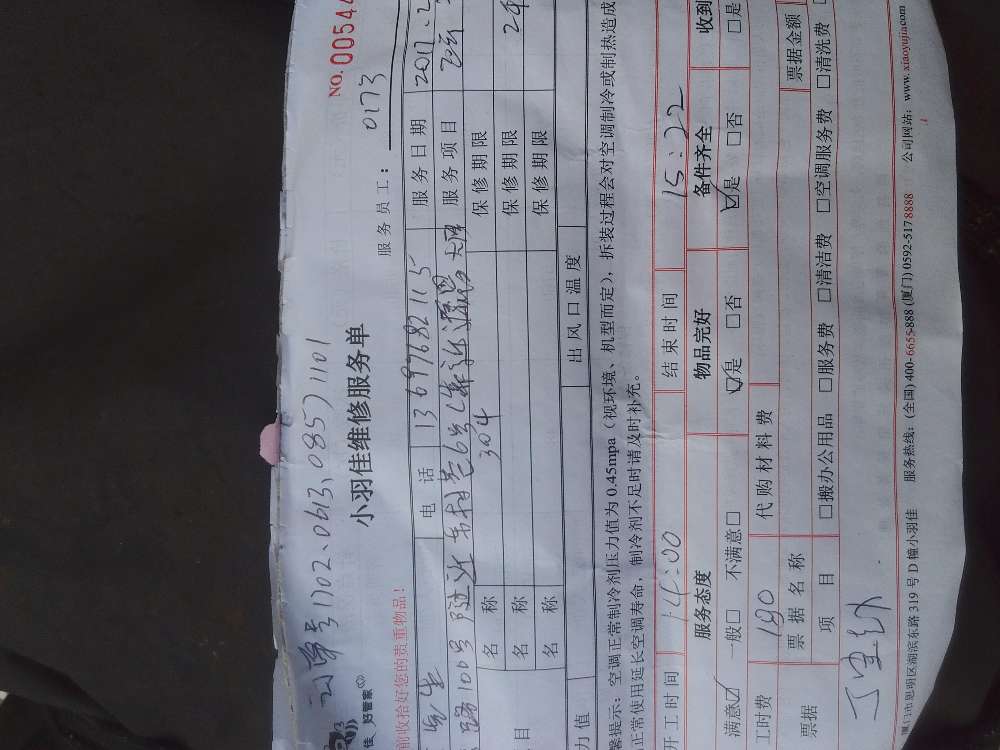 订单号1702.0613.085)1101
NO.00544
佳 好管家
小羽佳维修服务单
服务员工：0173
前收拾好您的贵重物品！
生 电话 13697682115 服务日期 2017.2
路100号 6号 服务项目
名称 304 保修期限
目 名称 保修期限 2年
名称 保修期限
力值 出风口温度
馨提示：空调正常制冷剂压力值为0.45mpa（视环境、机型而定），拆装过程会对空调制冷或制热造成
正常使用延长空调寿命，制冷剂不足时请及时补充。
开工时间 14:00 结束时间 15:22
服务态度 物品完好 备件齐全 收到
满意☑ 一般□ 不满意□ ☑是 □否 ☑是 □否 □是
工时费 180 代购材料费
票据 票据名称 票据金额
项目 □搬办公用品 □服务费 □清洁费 □空调服务费 □清洗费
厦门市思明区湖滨东路319号D幢小羽佳 服务热线：(全国)400-6655-888 (厦门)0592-5178888 公司网站：www.xiaoyujia.com